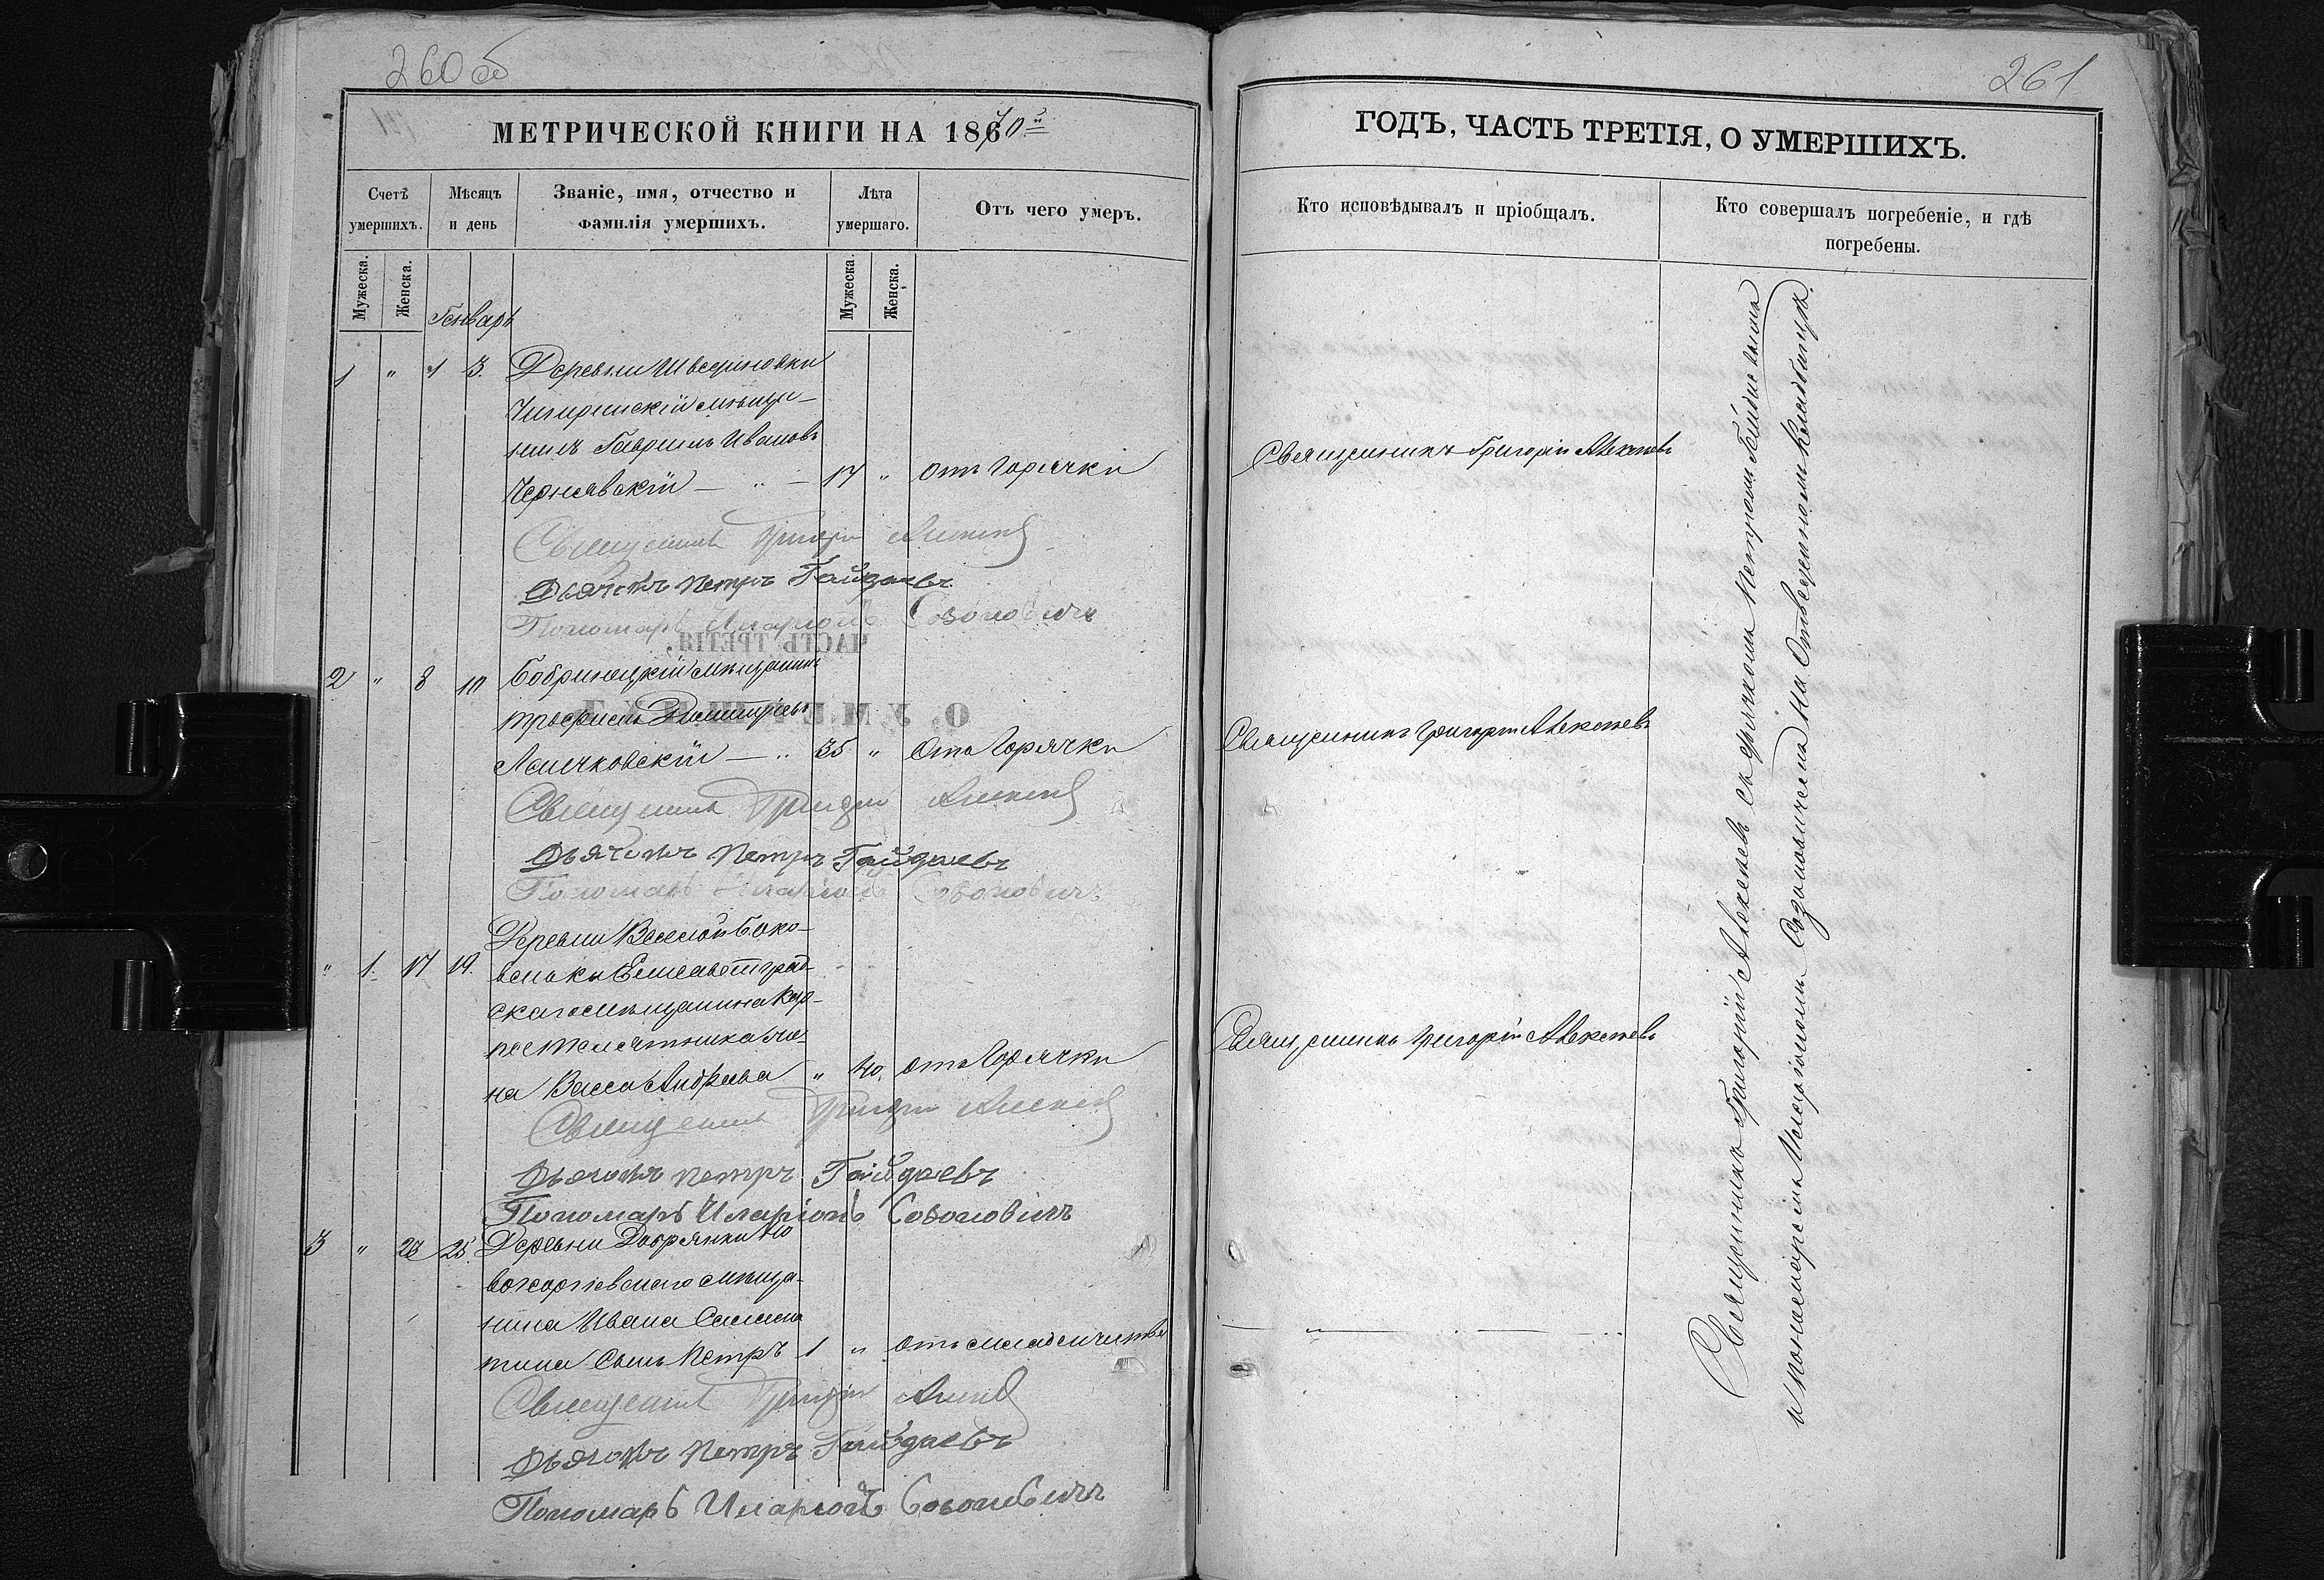 260 об
МЕТРИЧЕСКОЙ КНИГИ НА 1870й
Счетъ умершихъ.
Мѣсяцъ и день
Званіе, имя, отчество и фамилія умершихъ.
Лѣта умершаго.
Отъ чего умеръ.
Мужеска.
Женска.
Мужеска.
Женска.
Генварь
1 " 1 3. Деревни
Чигиринскій мѣща-
нинъ Гавріилъ Ивановъ
Чернявскій — " — 17 " отъ Горячки
Священникъ Григорій Алексѣевъ
Дьячокъ Петръ Гайдаевъ
Пономарь Иларіонъ Созоновичъ
2 " 8 10 Бобринецкій мѣщанинъ
Димитріевъ
— " 35 " Отъ Горячки
Священникъ Григорій Алексѣевъ
Дьячокъ Петръ Гайдаевъ
Пономарь Иларіонъ Созоновичъ
Деревни Веселой Боко-
" 1. 17 19. веньки Елисаветград-
скаго мѣщанина Кар-
на Васса Андреева " 40. отъ Горячки
Священникъ Григорій Алексѣевъ
Дьячокъ Петръ Гайдаевъ
Пономарь Иларіонъ Созоновичъ
3 " 23 25. Деревни Добрянки Но-
вогеоргіевскаго мѣща-
нина Ивана
тина сынъ Петръ 1 " отъ младенчества
Священникъ Григорій Алексѣевъ
Дьячокъ Петръ Гайдаевъ
Пономарь Иларіонъ Созоновичъ
261
ГОДЪ, ЧАСТЬ ТРЕТІЯ, О УМЕРШИХЪ.
Кто исповѣдывалъ и пріобщалъ.
Кто совершалъ погребеніе, и гдѣ погребены.
Священникъ Григорій Алексѣевъ
Священникъ Григорій Алексѣевъ
Священникъ Григорій Алексѣевъ
Священникъ Григорій Алексѣевъ съ дьячкомъ Петромъ Гайдаевымъ
и пономаремъ Иларіономъ Созоновичемъ На Отведенномъ Кладбищѣ.